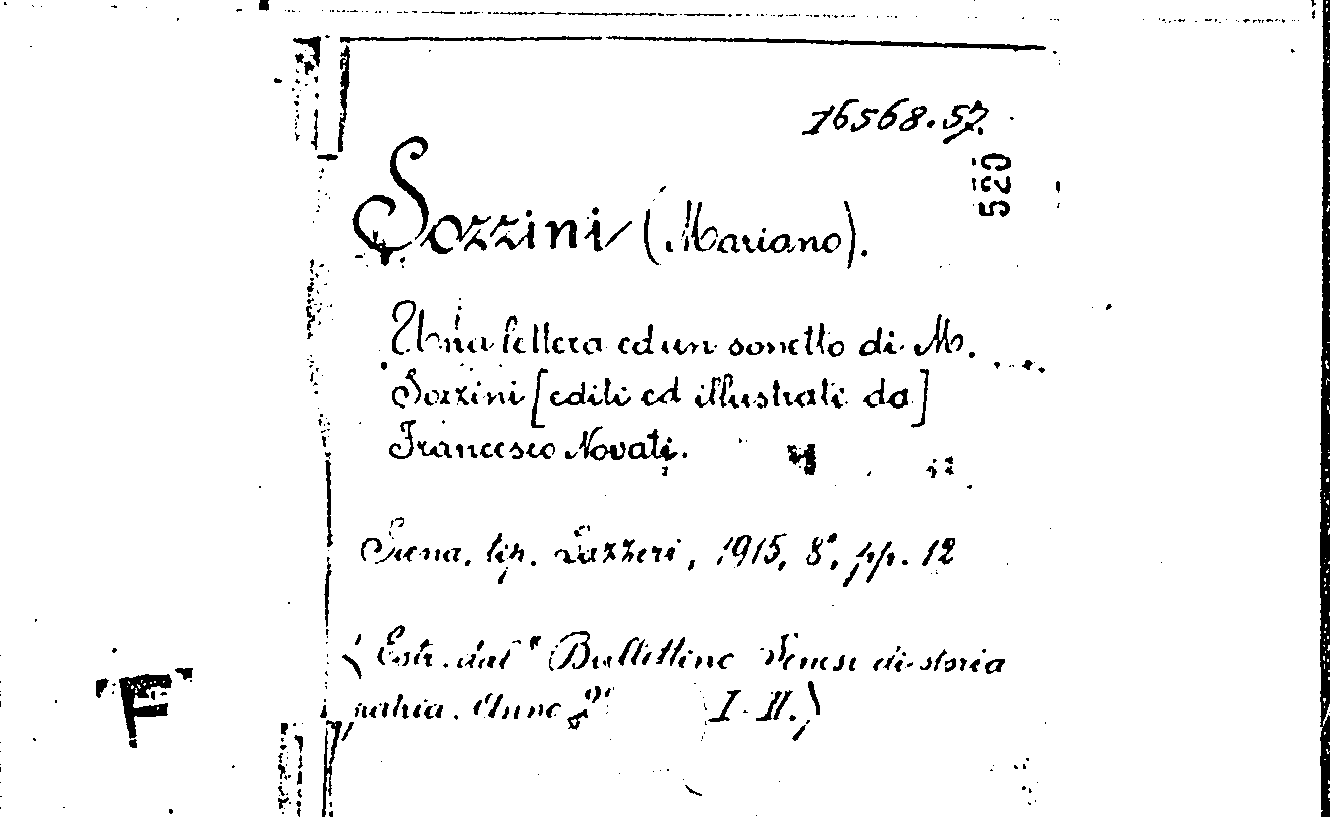 16568.57.
520
Sozzini (Mariano).
Una lettera ed un sonetto di M.
Sozzini [editi ed illustrati da]
Francesco Novati.
Siena, tip. Lazzeri, 1915, 8°, pp. 12
(Estr. dal "Bullettino Senese di storia
patria. Anno I-II.)
F